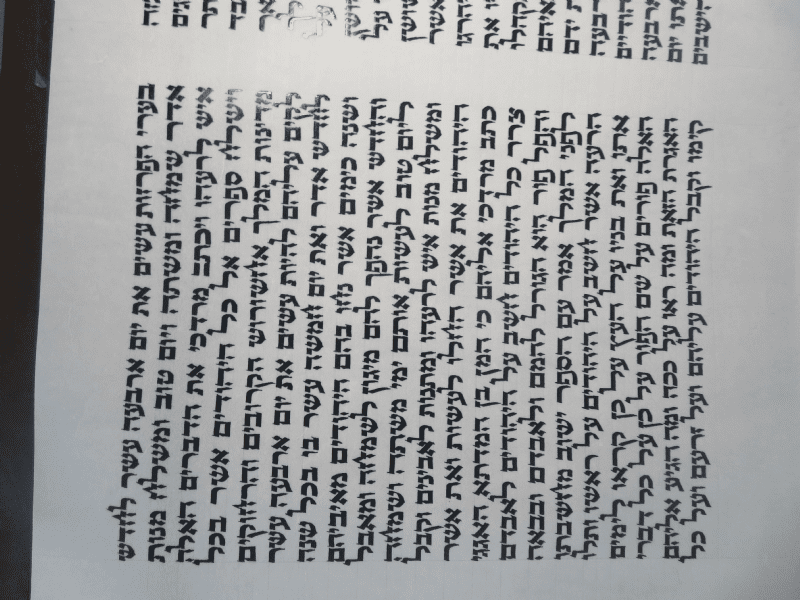 בערי הפרזות עשים את יום ארבעה עשר לחדש
אדר שמחה ומשתה ויום טוב ומשלח מנות
איש לרעהו ויכתב מרדכי את הדברים האלה
וישלח ספרים אל כל היהודים אשר בכל
מדינות המלך אחשורוש הקרובים והרחוקים
לקים עליהם להיות עשים את יום ארבעה עשר
לחדש אדר ואת יום חמשה עשר בו בכל שנה
ושנה כימים אשר נחו בהם היהודים מאיביהם
והחדש אשר נהפך להם מיגון לשמחה ומאבל
ליום טוב לעשות אותם ימי משתה ושמחה
ומשלח מנות איש לרעהו ומתנות לאבינים וקבל
היהודים את אשר החלו לעשות ואת אשר
כתב מרדכי אליהם כי המן בן המדתא האגגי
צרר כל היהודים חשב על היהודים לאבדם
והפל פור הוא הגורל להמם ולאבדם ובבאה
לפני המלך אמר עם הספר ישוב מחשבתו
הרעה אשר חשב על היהודים על ראשו ותלו
אתו ואת בניו על העץ על כן קראו לימים
האלה פורים על שם הפור על כן על כל דברי
האגרת הזאת ומה ראו על ככה ומה הגיע אליהם
קימו וקבל היהודים עליהם ועל זרעם ועל כל